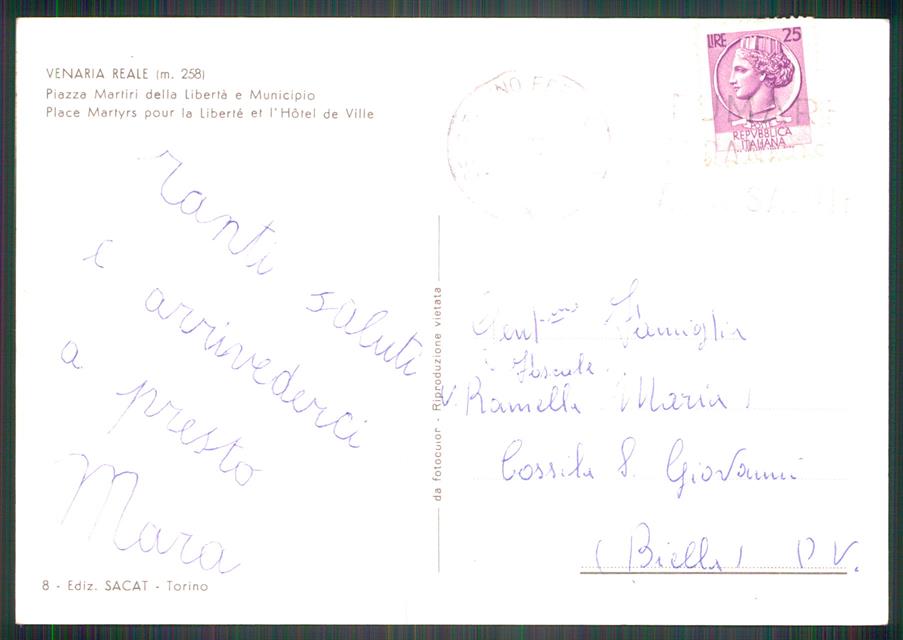 VENARIA REALE (m. 258)
Piazza Martiri della Libertà e Municipio
Place Martyrs pour la Liberté et l'Hôtel de Ville
LIRE 25
POSTE
REPVBBLICA
ITALIANA
Tanti saluti
e arrivederci
a presto
Mara
da fotocolor - Riproduzione vietata
Famiglia
Ramella Maria
Cossila S. Giovanni
(Biella) P. V.
8 - Ediz. SACAT - Torino